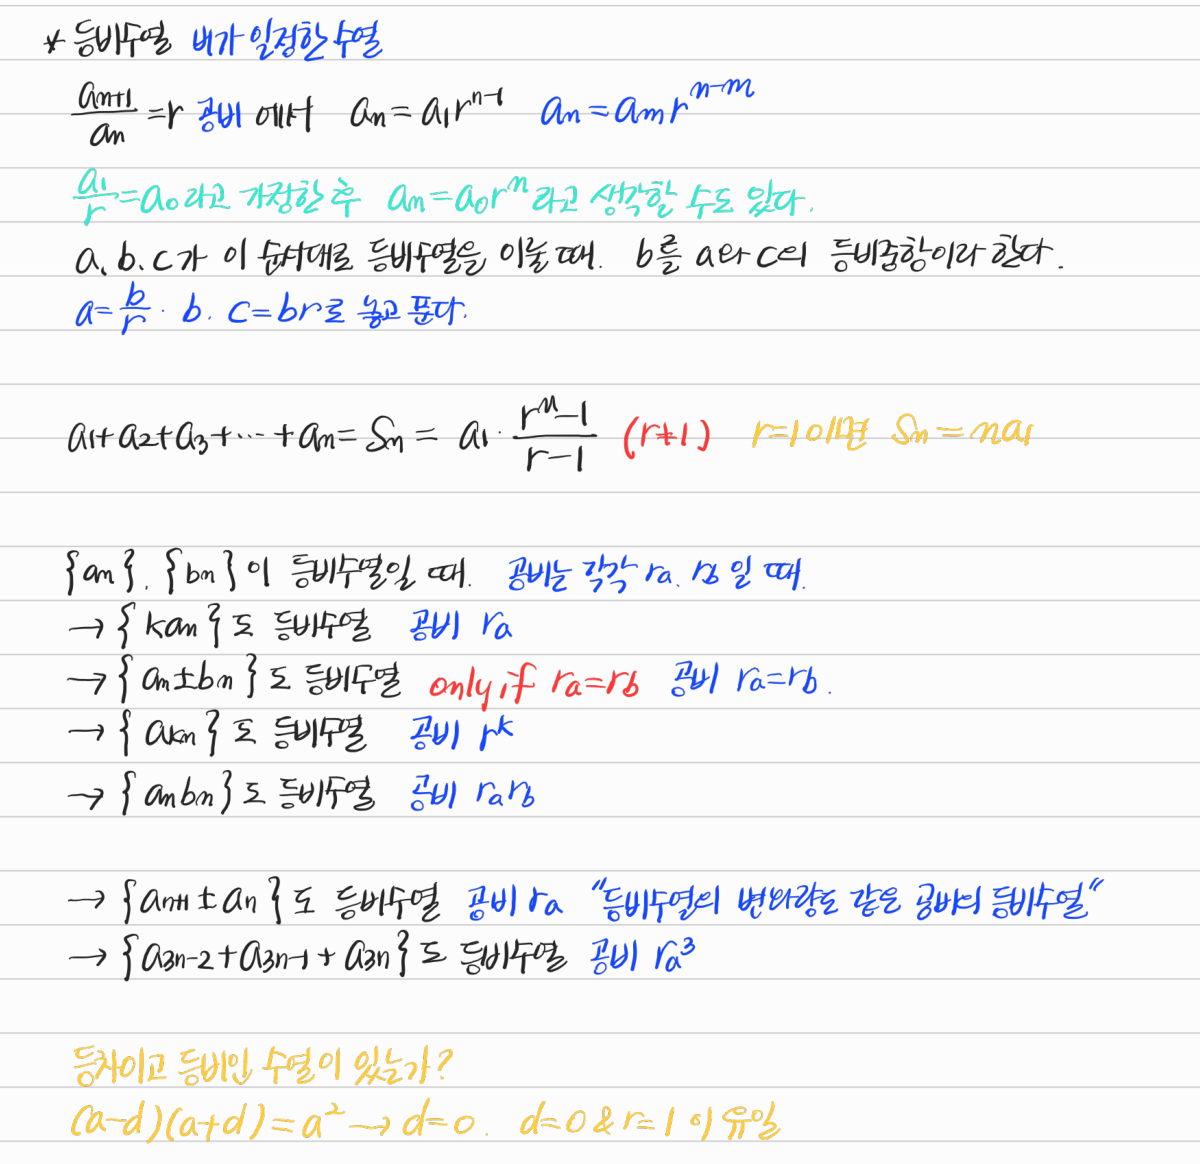 * 등비수열 비가 일정한 수열
aₙ₊₁/aₙ = r 공비 에서 aₙ = a₁rⁿ⁻¹ aₙ = aₘrⁿ⁻ᵐ
a₁/r = a₀라고 가정한 후 aₙ = a₀rⁿ라고 생각할 수도 있다.
a, b, c가 이 순서대로 등비수열을 이룰 때. b를 a와 c의 등비중항이라 한다.
a = b/r. b. c = br로 놓고 푼다.
a₁+a₂+a₃+⋯+aₙ = Sₙ = a₁·(rⁿ-1)/(r-1) (r≠1) r=1이면 Sₙ = na₁
{aₙ}, {bₙ}이 등비수열일 때. 공비는 각각 rₐ, r_b 일 때.
→ {kaₙ}도 등비수열 공비 rₐ
→ {aₙ±bₙ}도 등비수열 only if rₐ=r_b 공비 rₐ=r_b.
→ {aₖₙ}도 등비수열 공비 rᵏ
→ {aₙbₙ}도 등비수열 공비 rₐr_b
→ {aₙ₊₁±aₙ}도 등비수열 공비 rₐ "등비수열의 변화량도 같은 공비의 등비수열"
→ {a₃ₙ₋₂+a₃ₙ₋₁+a₃ₙ}도 등비수열 공비 rₐ³
등차이고 등비인 수열이 있는가?
(a-d)(a+d)=a² → d=0. d=0 & r=1 이 유일